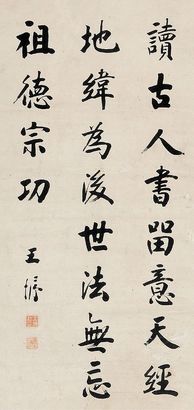 讀古人書留意天經
地緯為後世法無忘
祖德宗功
王